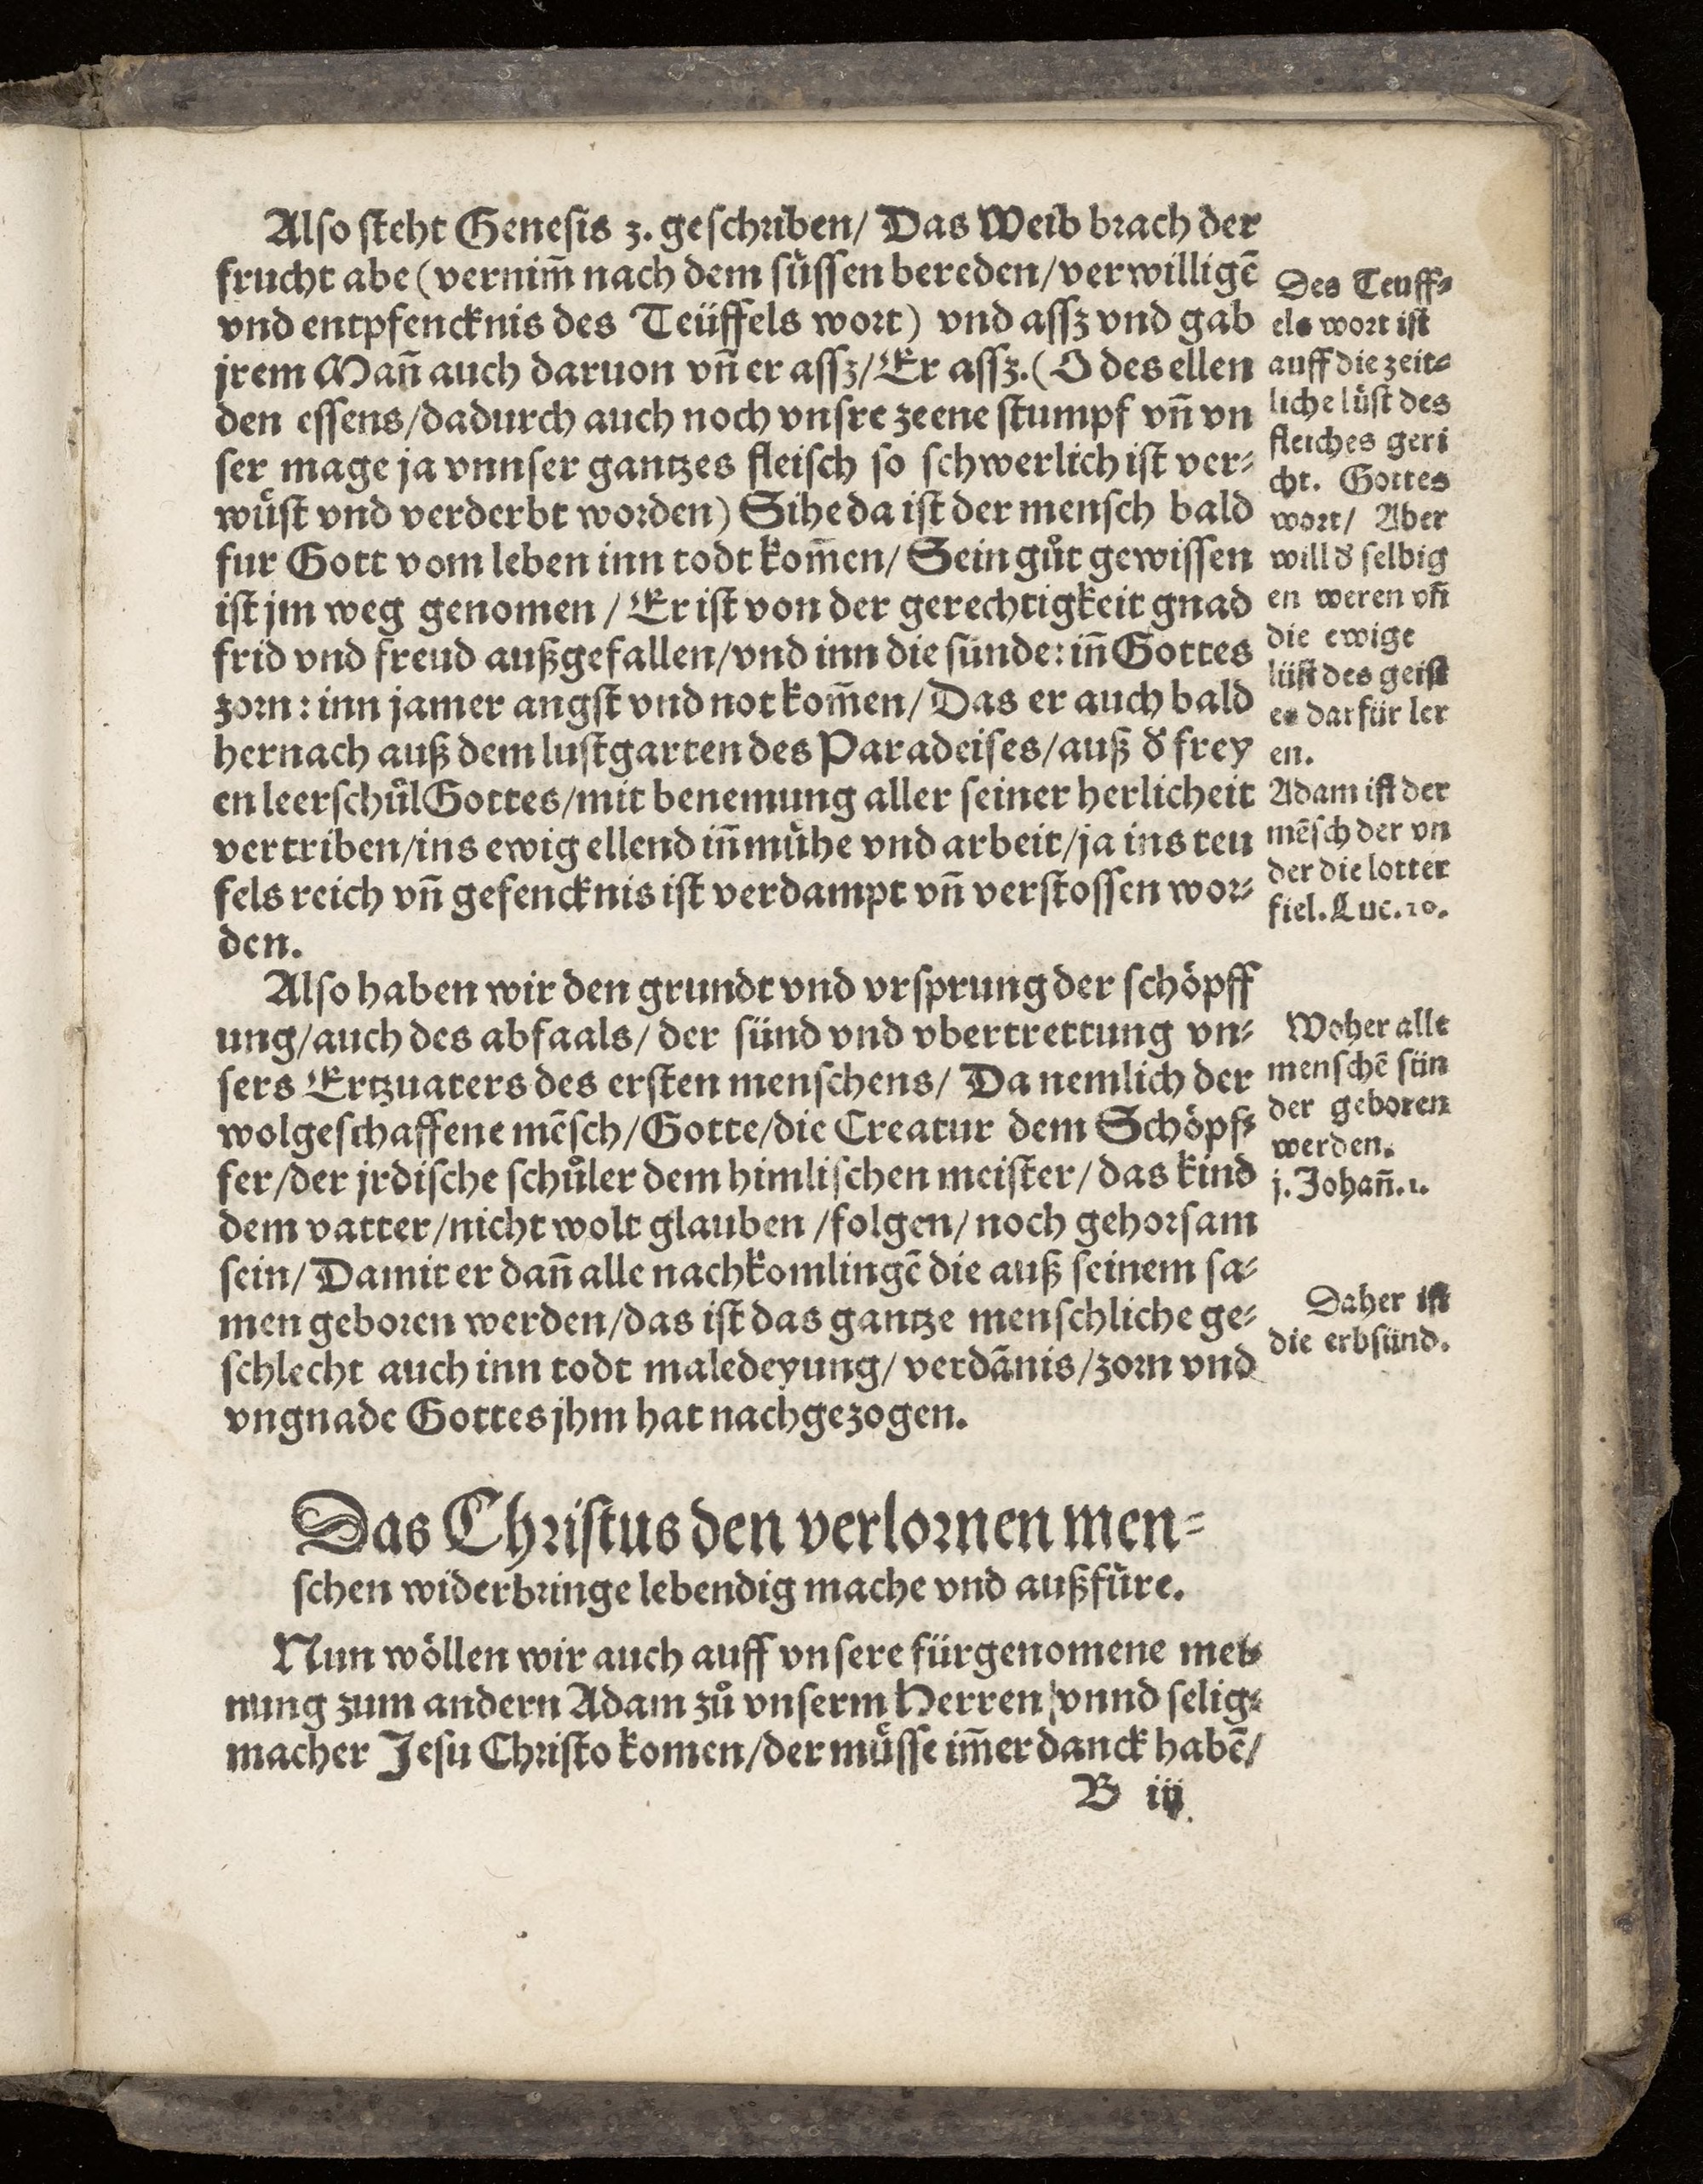 Also steht Genesis 3. geschriben/ Das Weib brach der
frucht abe (vernim̃ nach dem suͤssen bereden/ verwilligẽ
vnd entpfencknis des Teüffels wort) vnd assz vnd gab
jrem Mañ auch daruon vñ er assz/ Er assz. (O des ellen
den essens/ dadurch auch noch vnsre zeene stumpf vñ vn
ser mage ja vnnser gantzes fleisch so schwerlich ist ver⸗
wuͤst vnd verderbt worden) Sihe da ist der mensch bald
fur Gott vom leben inn todt kom̃en/ Sein guͦt gewissen
ist jm weg genomen / Er ist von der gerechtigkeit gnad
frid vnd freud außgefallen/ vnd inn die sünde: iñ Gottes
zorn: inn jamer angst vnd not kom̃en/ Das er auch bald
hernach auß dem lustgarten des Paradeises/ auß d̾ frey
en leerschuͦl Gottes/ mit benemung aller seiner herlicheit
vertriben/ ins ewig ellend iñ muͤhe vnd arbeit/ ja ins teu
fels reich vñ gefencknis ist verdampt vñ verstossen wor⸗
den.
Also haben wir den grundt vnd vrsprung der schöpff
ung/ auch des abfaals/ der sünd vnd vbertrettung vn⸗
sers Ertzuaters des ersten menschens/ Da nemlich der
wolgeschaffene mẽsch/ Gotte/ die Creatur dem Schöpf⸗
fer/ der jrdische schuͦler dem himlischen meister/ das kind
dem vatter/ nicht wolt glauben / folgen/ noch gehorsam
sein/ Damit er dañ alle nachkomlingẽ die auß seinem sa⸗
men geboren werden/ das ist das gantze menschliche ge⸗
schlecht auch inn todt maledeyung/ verdãnis/ zorn vnd
vngnade Gottes jhm hat nachgezogen.
Das Christus den verlornen men⸗
schen widerbringe lebendig mache vnd außfuͤre.
Nun wöllen wir auch auff vnsere fürgenomene mei⸗
nung zum andern Adam zuͦ vnserm Herren / vnnd selig⸗
macher Jesu Christo komen/ der muͤsse im̃er danck habẽ/
B iij
Des Teuff⸗
els wort ist
auff die zeit⸗
liche lüst des
fleiches geri
cht. Gottes
wort/ Aber
will d̾ selbig
en weren vñ
die ewige
lüst des geist
es darfür ler
en.
Adam ist der
mẽsch der vn
der die lotter
fiel. Luc. 10.
Woher alle
menschẽ sün
der geboren
werden.
j. Johañ. 1.
Daher ist
die erbsünd.